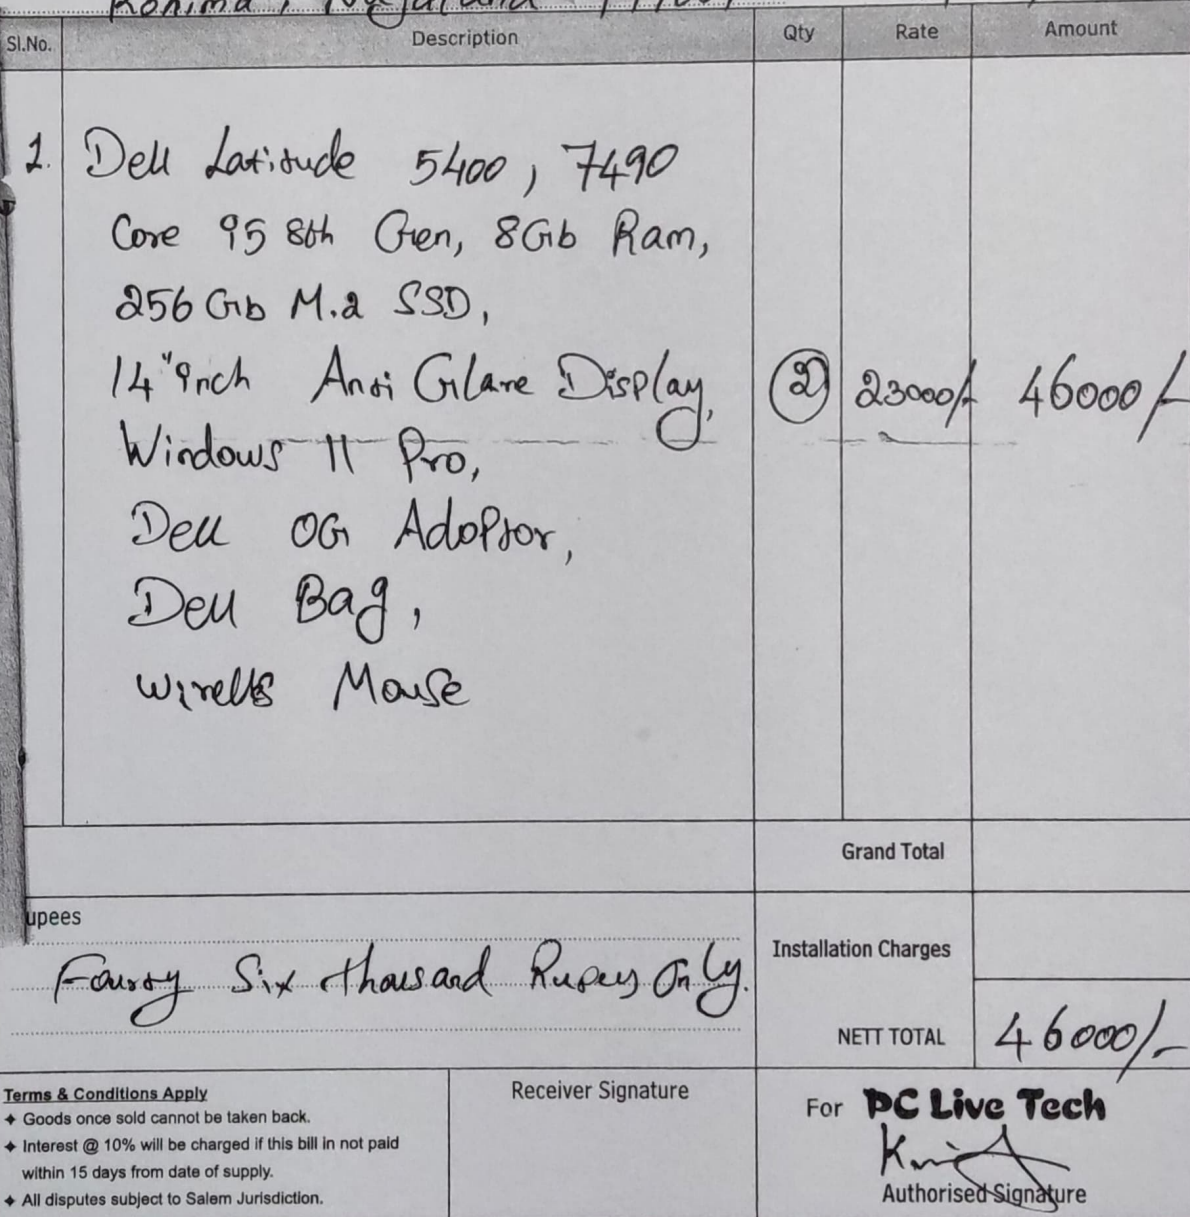 Kohima, Nagaland
Sl.No. Description Qty Rate Amount
1. Dell Latitude 5400, 7490
Core i5 8th Gen, 8Gb Ram,
256 Gb M.2 SSD,
14" inch Anti Glare Display, 2 23000/- 46000/-
Windows 11 Pro,
Dell OG Adoptor,
Dell Bag,
Wirells Mouse
Grand Total
upees
Fourty Six thousand Rupees Only.
Installation Charges
NETT TOTAL 46000/-
Terms & Conditions Apply
Goods once sold cannot be taken back.
Interest @ 10% will be charged if this bill in not paid
within 15 days from date of supply.
All disputes subject to Salem Jurisdiction.
Receiver Signature
For PC Live Tech
Authorised Signature